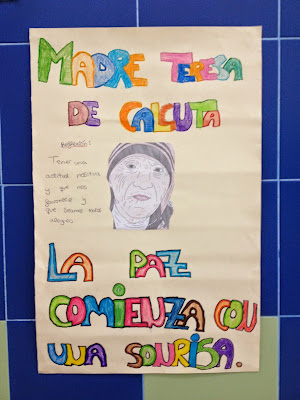 MADRE TERESA
DE CALCUTA
Tener una
actitud positiva
y que nos
y
que seamos todos
LA PAZ
COMIENZA CON
UNA SONRISA.